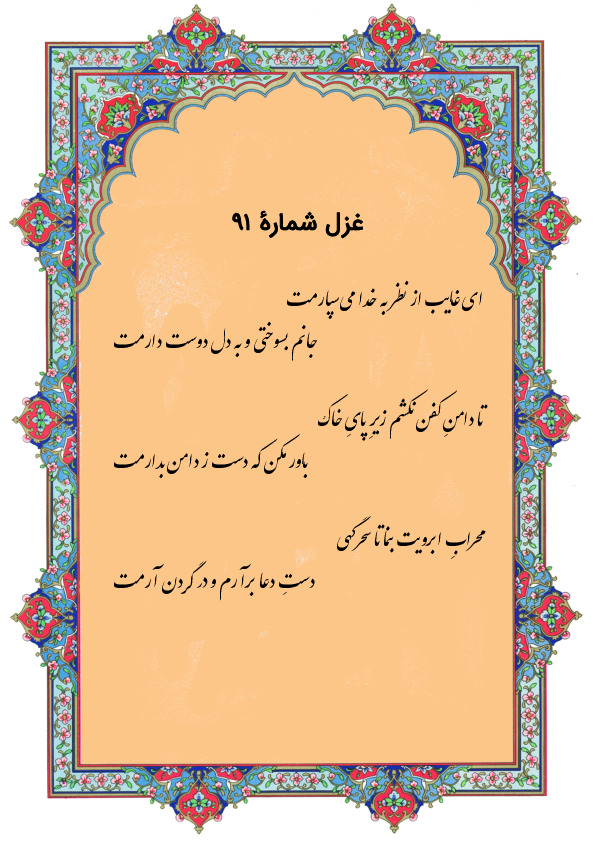 غزل شمارهٔ ۹۱
ای غایب از نظر به خدا می‌سپارمت
جانم بسوختی و به دل دوست دارمت
تا دامنِ کفن نکشم زیرِ پایِ خاک
باور مکن که دست ز دامن بدارمت
محرابِ ابرویت بنما تا سحرگهی
دستِ دعا برآرم و در گردن آرمت